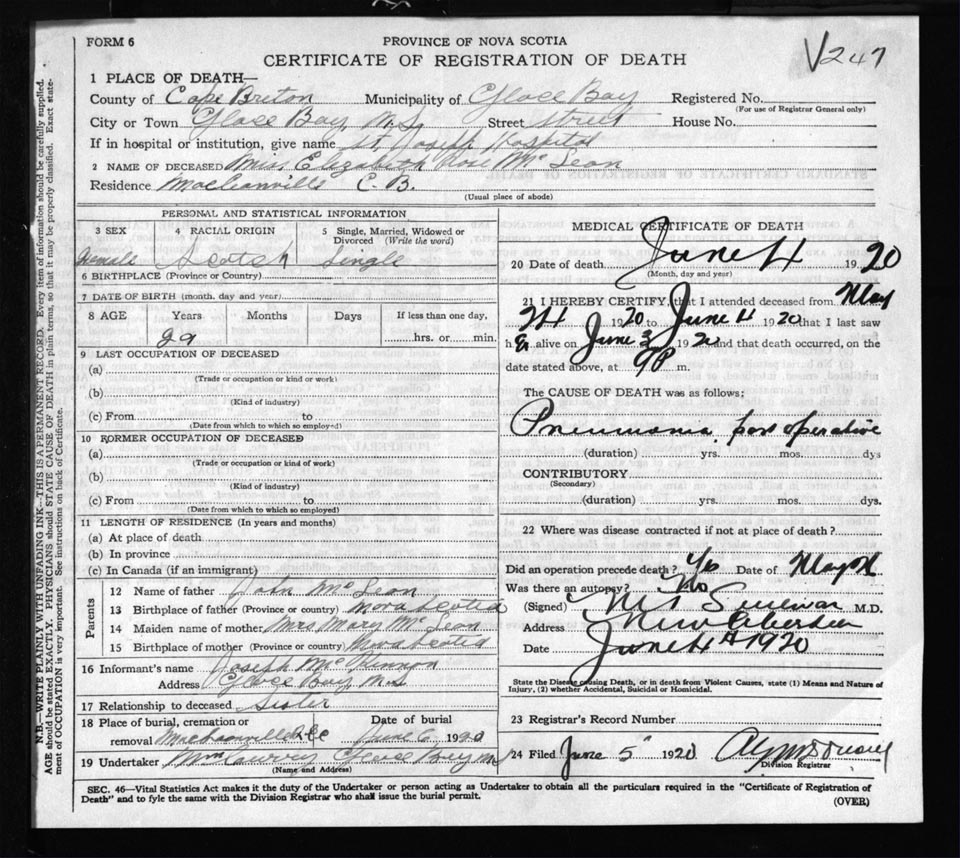 FORM 6
PROVINCE OF NOVA SCOTIA
CERTIFICATE OF REGISTRATION OF DEATH
V247
1 PLACE OF DEATH—
County of Cape Breton Municipality of Glace Bay Registered No.
(For use of Registrar General only)
City or Town Glace Bay, N.S. Street Street House No.
If in hospital or institution, give name St. Joseph Hospital
2 NAME OF DECEASED Miss Elizabeth Rose McLean
Residence Macleanville C. B.
(Usual place of abode)
PERSONAL AND STATISTICAL INFORMATION
3 SEX 4 RACIAL ORIGIN 5 Single, Married, Widowed or Divorced (Write the word)
Female Scotch Single
6 BIRTHPLACE (Province or Country)
7 DATE OF BIRTH (month, day and year)
8 AGE Years Months Days If less than one day,
hrs. or min.
9 LAST OCCUPATION OF DECEASED
(a)
(Trade or occupation or kind or work)
(b)
(Kind of industry)
(c) From to
(Date from which to which so employed)
10 RORMER OCCUPATION OF DECEASED
(a)
(Trade or occupation or kind of work)
(b)
(Kind of industry)
(c) From to
(Date from which to which so employed)
11 LENGTH OF RESIDENCE (In years and months)
(a) At place of death
(b) In province
(c) In Canada (if an immigrant)
Parents
12 Name of father John McLean
13 Birthplace of father (Province or country) Nova Scotia
14 Maiden name of mother Mrs Mary McLean
15 Birthplace of mother (Province or country) Nova Scotia
16 Informant's name Joseph McKinnon
Address Glace Bay N.S
17 Relationship to deceased Sister
18 Place of burial, cremation or removal Date of burial
June 6 1920
19 Undertaker Glace Bay NS
(Name and Address)
MEDICAL CERTIFICATE OF DEATH
20 Date of death June 4 1920
(Month, day and year)
21 I HEREBY CERTIFY, that I attended deceased from May
24 1920 to June 4 1920 that I last saw
h er alive on June 3 1920 and that death occurred, on the
date stated above, at 9P m.
The CAUSE OF DEATH was as follows:
Pneumonia, post operative
(duration) yrs. mos. dys
CONTRIBUTORY
(Secondary)
(duration) yrs. mos. dys.
22 Where was disease contracted if not at place of death?
Did an operation precede death? Yes Date of May
Was there an autopsy? No
(Signed) M.D.
Address New Aberdeen
Date June 4th 1920
State the Disease causing Death, or in death from Violent Causes, state (1) Means and Nature of
Injury, (2) whether Accidental, Suicidal or Homicidal.
23 Registrar's Record Number
24 Filed June 5 1920
Division Registrar
SEC. 46—Vital Statistics Act makes it the duty of the Undertaker or person acting as Undertaker to obtain all the particulars required in the "Certificate of Registration of
Death" and to fyle the same with the Division Registrar who shall issue the burial permit.
(OVER)
N.B.—WRITE PLAINLY WITH UNFADING INK—THIS IS A PERMANENT RECORD. Every item of information should be carefully supplied.
AGE should be stated EXACTLY. PHYSICIANS should STATE CAUSE OF DEATH in plain terms, so that it may be properly classified. Exact state-
ment of OCCUPATION is very important. See instructions on back of Certificate.